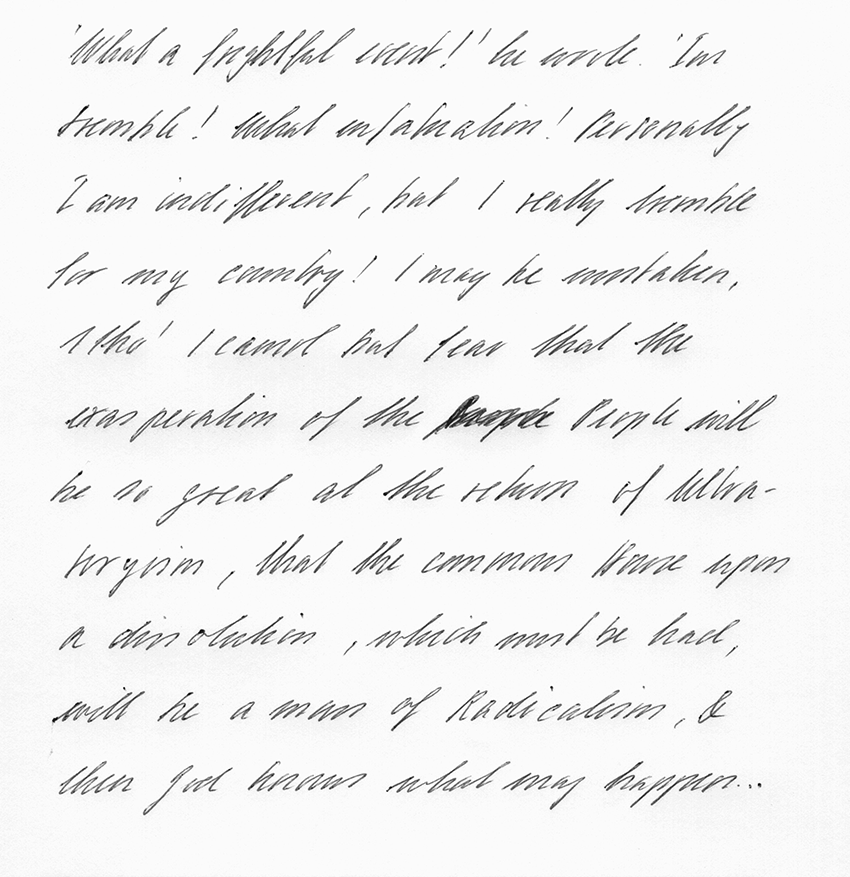 'What a frightful event!' he wrote. 'I'm
tremble! What infatuation! Personally
I am indifferent, but I really tremble
for my country! I may be mistaken,
tho' I cannot but fear that the
exasperation of the People will
be so great at the return of Ultra-
toryism, that the common House upon
a dissolution, which must be had,
will be a mass of Radicalism, &
then God knows what may happen...